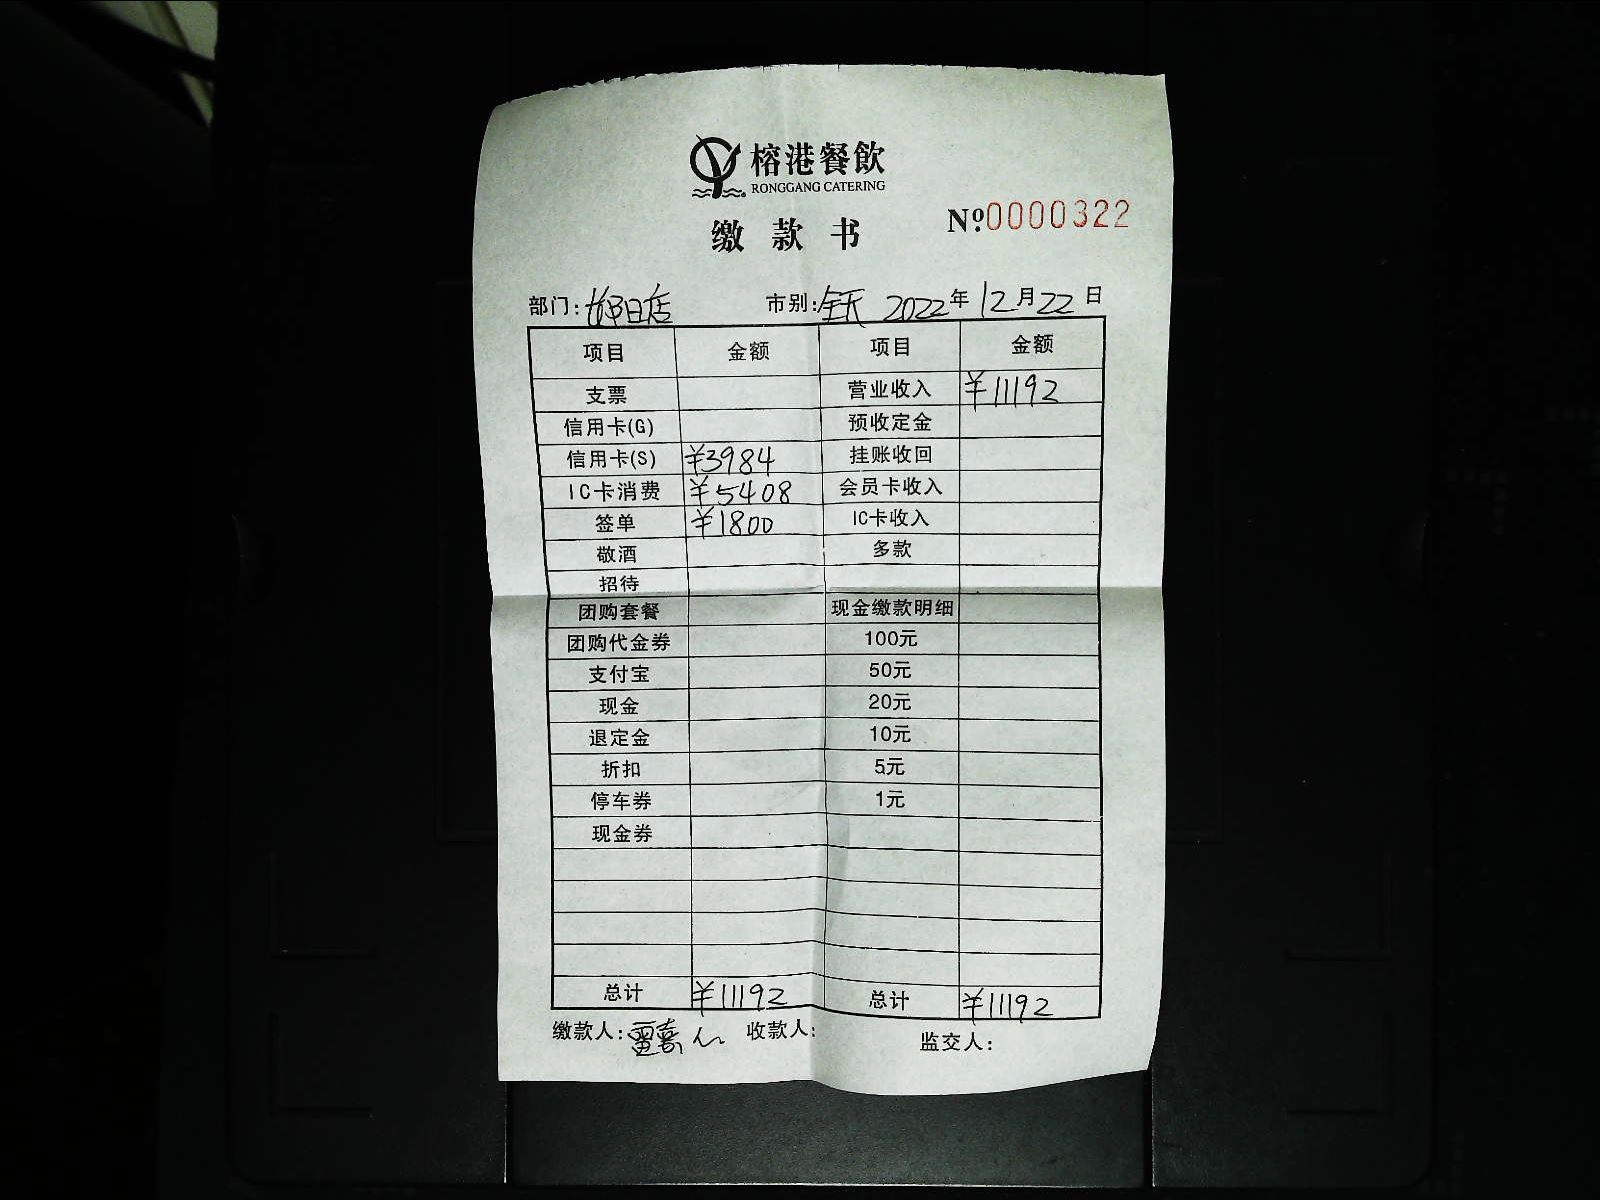 榕港餐飲
RONGGANG CATERING
缴款书
№0000322
部门: 市别:全天 2022年12月22日
项目 金额 项目 金额
支票 营业收入 ¥11192
信用卡(G) 预收定金
信用卡(S) ¥3984 挂账收回
IC卡消费 ¥5408 会员卡收入
签单 ¥1800 IC卡收入
敬酒 多款
招待
团购套餐 现金缴款明细
团购代金券 100元
支付宝 50元
现金 20元
退定金 10元
折扣 5元
停车券 1元
现金券
总计 ¥11192 总计 ¥11192
缴款人: 收款人: 监交人: